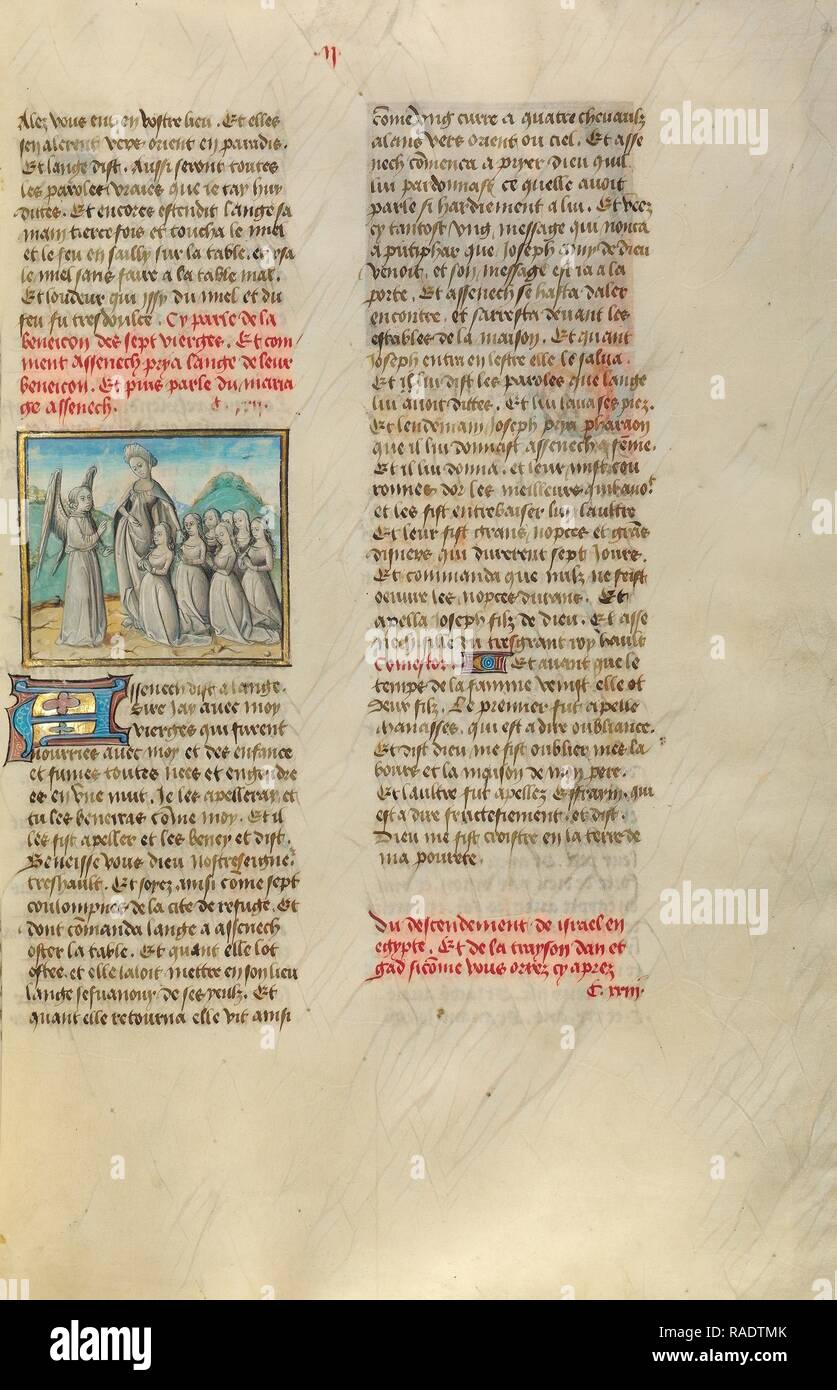 ·ij·
Alez vous ent en vostre lieu. Et elles
sen alerent vers orient en paradis.
Et lange dist. Aussi seront toutes
les paroles vraies que ie tay huy
dittes. Et encores estendit lange sa
main tierce fois et toucha le miel
et le feu en sailly sur la table. et usa
le miel sans faire a la table mal.
Et loudeur qui yssy du miel et du
feu fu tresdoulce. Cy parle de la
beneicon des sept vierges. Et com
ment assenech prya lange de leur
beneicon. Et puis parle du maria
ge assenech.
Assenech dist a lange.
Sire Jay avec moy
vierges qui furent
nourries avec moy et des enfance
et fumes toutes nees et engendre
es en une nuit. Je les apelleray et
tu les beneiras cõme moy. Et il
les fist apeller et les beney et dist.
Beneisse vous dieu nostre seigne
treshault. Et soyez ainsi come sept
coulompnes de la cite de refuge. Et
dont cõmanda lange a assenech
oster la table. Et quant elle lot
ostee. et elle laloit mettre en son lieu
lange sesvanouy de ses yeulz. Et
quant elle retourna elle vit ainsi
cõme ung curre a quatre chevaulz
alans vers orient ou ciel. Et asse
nech cõmenca a pryer dieu quil
lui pardonnast ce quelle avoit
parle si hardiement a lui. Et veez
cy tantost ung message qui nonca
a putiphar que Joseph amy de dieu
venoit. et son message est ia a la
porte. Et assenech se hasta daler
encontre. et sarresta devant les
estables de la maison. Et quant
Joseph entra en lestre elle le salua.
Et il lui dist les paroles que lange
lui avoit dittes. Et lui lava ses piez.
Et lendemain Joseph prya pharaon
que il lui donnast assenech a fẽme.
Et il lui donna. et leur mist cou
ronnes dor les meilleurs quil avo
et les fist entrebaiser lun laultre
Et leur fist grans nopces et grãs
disners qui durerent sept Jours.
Et commanda que nulz ne feist
oeuvre les nopces durans. Et
apella Joseph filz de dieu. Et asse
nech fille du tresgrant roy hault
Comestor. Et avant que le
temps de la famine venist elle ot
deux filz. Le premier fut apelle
manasses. qui est a dire oubliance.
Et dist dieu me fist oublier mes la
bours et la maison de mon pere.
Et laultre fut apellez Effraym. qui
est a dire fructefiement. et dist.
Dieu me fist croistre en la terre de
ma povrete.
Du descendement de israel en
egypte. Et de la trayson dan et
gad sicõme vous orrez cy aprez
C. xxiii.
alamy
Image ID: RADTMK
www.alamy.com